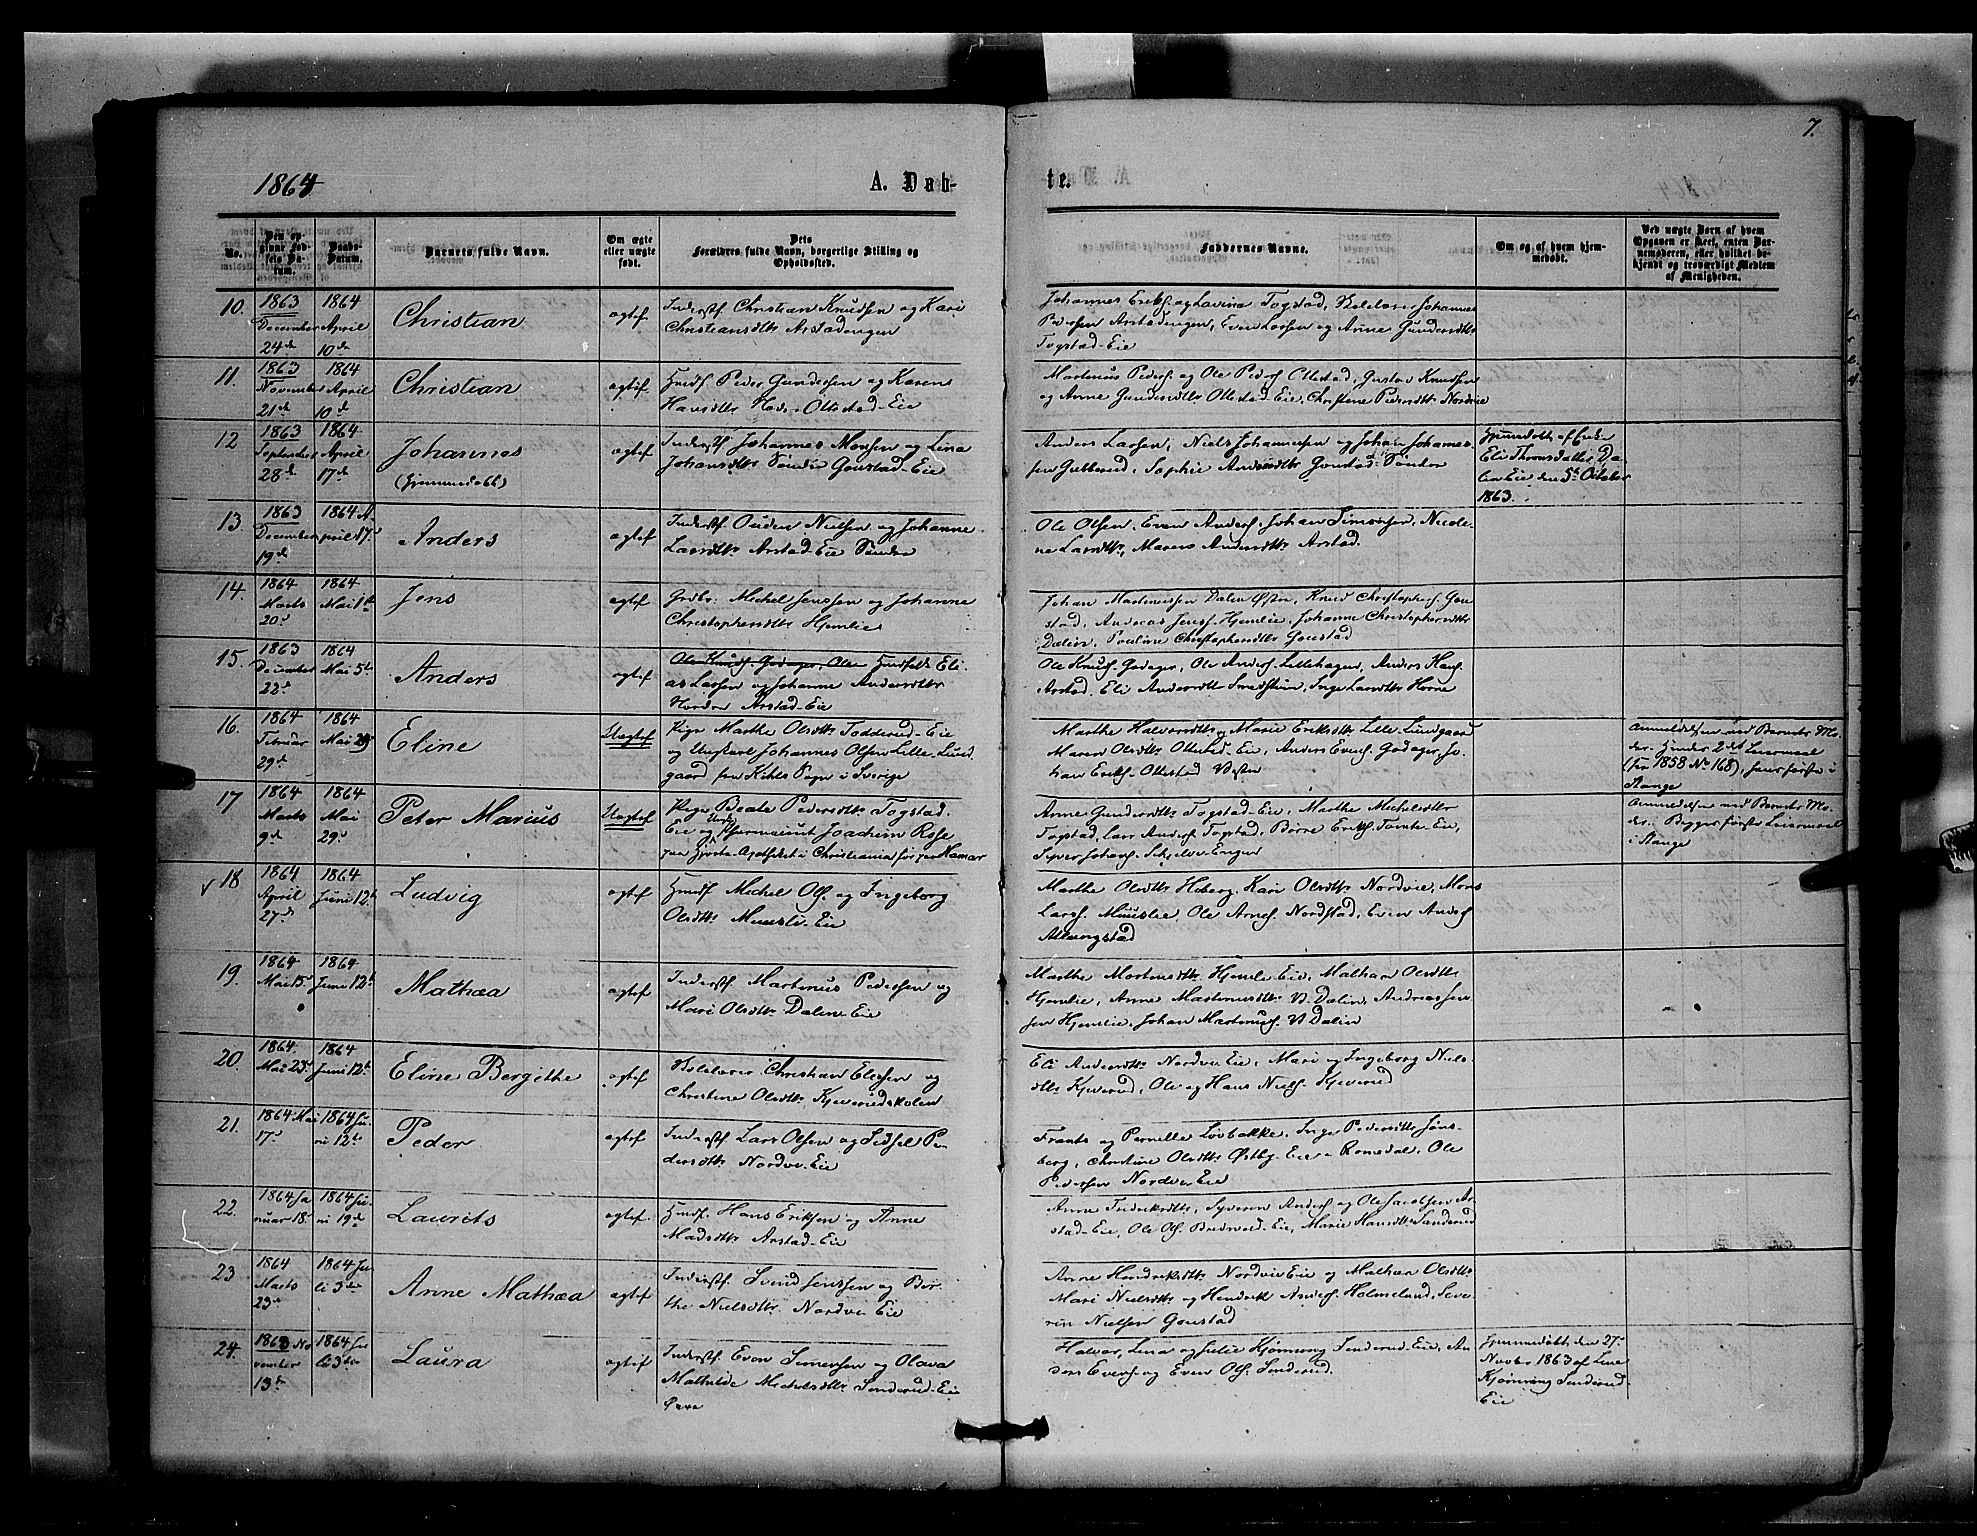 7.
1864 A. Døb- te.
No.
Den op-
givne Fød-
sels Da-
tum.
Daabs-
Datum.
Barnets fulde Navn.
Om ægte
eller uægte
født.
Dets
Forældres fulde Navn, borgerlige Stilling og
Opholdssted.
Faddernes Navne.
Om og af hvem hjem-
medøbt.
Ved uægte Børn af hvem
Opgaven er skeet, enten Bar-
nemoderen, eller hvilket be-
kjendt og troværdigt Medlem
af Menigheden.
10. 1863 December 24de
1864 April 10de
Christian
ægtef
Inderstf Christian Knudsen og Kari
Christiansdttr Arstadengen
Johannes Eriks. og Lovine Togstad, Skolelærer Johannes
Pedersen Arstadengen, Even Larsen og Anne Gundersdttr
Togstad-Eie
11. 1863 November 21de
1864 April 10de
Christian
ægtef.
Huusf. Peder Gundersen og Karen
Hansdttr Ottestad-Eie
Martinus Peders. og Ole Peders Ottestad, Gustav Knudsen
og Anne Gundersdttr Ottestad-Eie, Christine Pedersdttr Nordvie
12 1863 September 28de
1864 April 17de
Johannes
(hjemmedøbt)
ægtef
Inderstf Johannes Monsen og Lina
Johansdttr Søndre Gonstad-Eie
Anders Larsen, Niels Johannessen og Johan Johannes-
sen Gubberud, Sophie Andersdttr Gonstad-Søndre
Hjemmedøbt af Enke
Eli Thronsdatter Da-
len Eie den 5te October
1863.
13. 1863 December 19de
1864 April 17de
Anders
ægtef
Inderstf Ouden Nielsen og Johanne
Larsdttr Arstad-Eie Søndre
Ole Olsen, Even Anders. Johan Simensen, Nicoli-
ne Larsdttr, Maren Andersdttr Arstad.
14. 1864 Marts 20de
1864 Mai 1ste
Jens
ægtef
Grdbr. Michel Jenssen og Johanne
Christophersdttr Hjemlie
Johan Martinussen Dalen Østre, Knud Christophers. Gon-
stad, Andreas Jenss. Hjemlie, Johanne Christophersdttr
Dalen, Pauline Christophersdttr Gonstad
15. 1863 December 22de
1864 Mai 5te
Anders
ægtef
Ole Knuds. Godager, Ole Huusfolk Eli-
as Larsen og Johanne Andersdttr
Nordre Arstad-Eie
Ole Knuds. Godager, Ole Anders. Lillehagen, Anders Hans.
Arstad, Eli Andersdttr Smedstuen, Inge Larsdttr Horne
16. 1864 Februar 29de
1864 Mai 29de
Eline
Uægtef
Pige Marthe Olsdttr Todderud-Eie
og Ungkarl Johannes Olsen Lille-Lund-
gaard fra Kihls Sogn i Sverige
Marthe Halvorsdttr og Marie Eriksdttr Lille-Lundgaard
Maren Olsdttr Ottestad-Eie, Anders Evens. Godager, Jo-
han Eriks. Ottestad Vestre
Anmeldelsen ved Barnets Mo-
der. Hendes 2det Leiermaal
(For 1858 No 168), hans første i
Stange
17 1864 Marts 9de
1864 Mai 29de
Peter Marius
Uægtef
Pige Beate Pedersdttr Togstad-
Eie og Pharmaceut Joachim Rose
paa Hjorte-Apotheket i Christiania før paa Hamar
Anne Gundersdttr Togstad-Eie, Marthe Michelsdttr
Togstad, Lars Anders. Togstad, Børre Eriks. Tomte-Eie,
Syver Johans. Skjelve-Engen
Anmeldelsen ved Barnets Mo-
der. Begges første Leiermaal
i Stange
18 1864 April 27de
1864 Juni 12te
Ludvig
ægtef
Huusf. Michel Ols. og Ingeborg
Olsdttr Muuslie-Eie
Marthe Olsdttr Hoberg, Kari Olsdttr Nordvie, Mons
Larss. Muuslie, Ole Arnes. Nordstad, Even Anders
Alvengstad
19. 1864 Mai 15de
1864 Juni 12te
Mathea
ægtef
Inderstf Martinus Pedersen og
Mari Olsdttr Dalen-Eie
Marthe Mortensdttr Hjemlie-Eie, Mathea Olsdttr
Hjemlie, Anne Martinusdttr V. Dalen, Andreas Jen-
sen Hjemlie, Johan Martinus. V. Dalen
20. 1864. Mai 23de
1864 Juni 12te
Eline Bergithe
ægtef
Skolelærer Christian Eliesen og
Christine Olsdttr Kjeverudskolen
Eli Andersdttr Nordvie-Eie, Mari og Ingeborg Niels-
dttr Kjeverud, Ole og Hans Niels. Kjeverud
21. 1864 Mai 17de
1864 Ju-
ni 12te
Peder
ægtef
Inderstf Lars Olsen og Sidsel Pe-
dersdttr Nordvie-Eie
Frants og Pernille Løvbakke, Inge Pedersdttr Jøns-
berg, Christine Olsdttr Østby-Eie i Romedal, Ole
Pedersen Nordvie-Eie
22. 1864 Ja-
nuar 18de
1864 Ju-
ni 19de
Laurits
ægtef.
Huusf. Hans Eriksen og Anne
Madsdttr Arstad-Eie
Anne Fredriksdttr, Syveren Anders. og Ole Jacobsen Ar-
stad-Eie, Ole Ols. Bredvold-Eie, Marie Hansdttr Sanderud
23 1864 Marts 23de
1864 Ju-
li 3die
Anne Mathea
ægtef
Inderstf. Svend Jenssen og Ber-
the Nielsdttr Nordvie Eie
Anne Hendriksdttr Nordvie Eie og Mathea Olsdttr
Mari Nielsdttr og Hendrik Anders. Holmelund, Seve-
rin Nielsen Gonstad
24. 1863 No-
vember
13de
1864 Ju-
li 3die
Laura
ægtef
Inderstf Even Simensen og Olava
Mathilde Michelsdttr Sønderud-Eie
Øvre
Halvor, Lina og Julie Kjønning Sønderud-Eie, An-
ders Evens. og Even Ols. Sønderud.
Hjemmedøbt den 27de
Novbr 1863 af Line
Kjønning Sønderud-
Eie